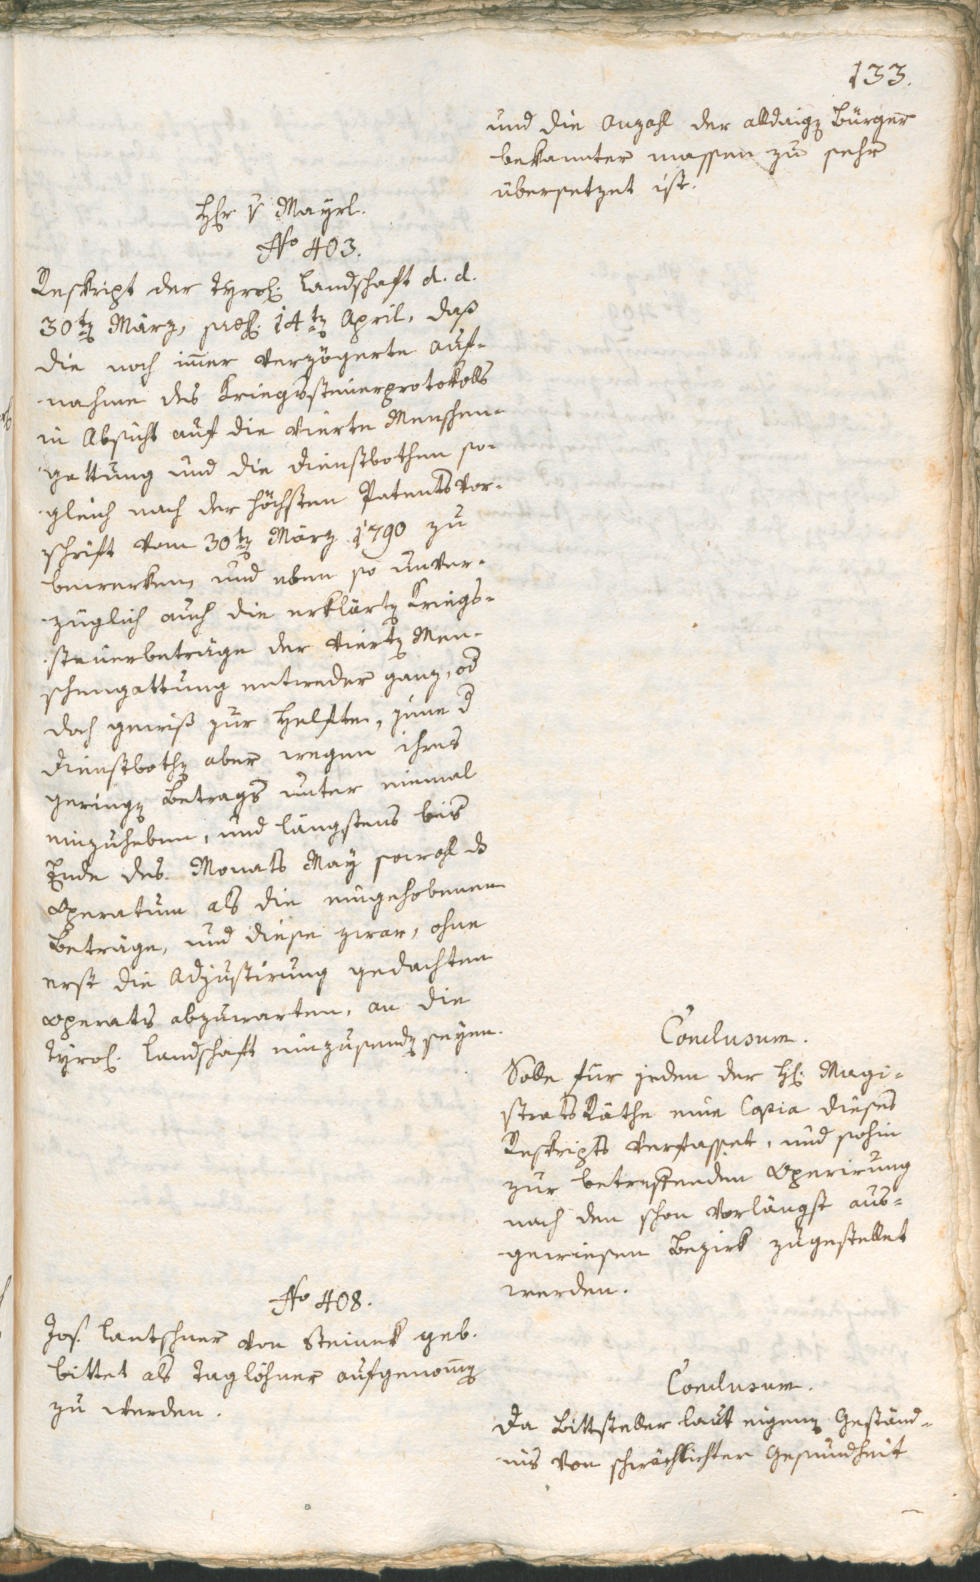 133.
und die Anzahl der alldaigen Bürger
bekannter massen zu sehr
übersetzet ist.
Hr. v Mayrl.
No 403.
Reskript der Tyrol. Landschaft d. d.
30ten März, praes. 14ten April, daß
die noch immer verzögerte Auf-
nahme des Kriegssteuerprotokolls
in Absicht auf die vierte Menschen-
gattung und die Dienstbothen so-
gleich nach der höchsten Patentsvor-
schrift vom 30ten März 1790 zu
bewerken, und eben so unver-
züglich auch die erklärten Kriegs-
steuerbeträge der vierten Men-
schengattung entweder ganz, od
doch gewiß zur Helfte, jene d
Dienstbothen aber wegen ihres
geringen Betrags unter einmal
einzuheben, und längstens bis
Ende des Monats May sowohl ds
Operatum als die eingehobenen
Beträge, und diese zwar, ohne
erst die Adjustirung gedachten
Operats abzuwarten, an die
Tyrol. Landschaft einzusenden seyen.
Conclusum.
Solle für jeden der H. Magi-
strats Räthe eine Copia dieses
Reskripts verfasset, und sohin
zur betreffenden Operirung
nach den schon vorlängst aus-
gewiesen Bezirk zugestellet
werden.
No 408.
Jos. Lantschner von Steinek geb.
bittet als Taglöhner aufgenommen
zu werden.
Conclusum.
Da Bittsteller laut eigenen Geständ-
nis von schwächlichter Gesundheit